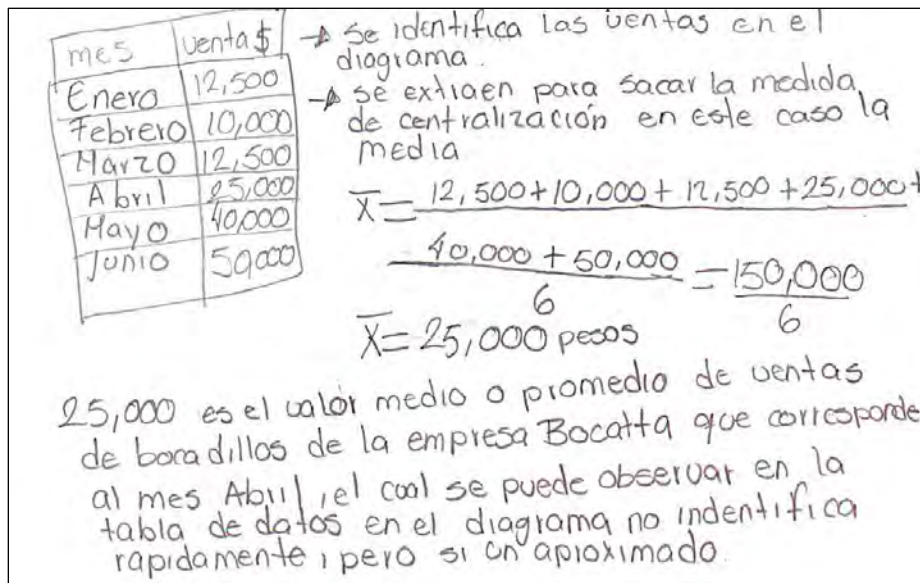 mes venta $
Enero 12,500
Febrero 10,000
Marzo 12,500
Abril 25,000
Mayo 40,000
Junio 50,000
→ se identifica las ventas en el
diagrama.
→ se extraen para sacar la medida
de centralización en este caso la
media
X̄ = 12,500+10,000+12,500+25,000+
40,000+50,000 / 6 = 150,000 / 6
X̄ = 25,000 pesos
25,000 es el valor medio o promedio de ventas
de bocadillos de la empresa Bocatta que corresponde
al mes Abril, el cual se puede observar en la
tabla de datos en el diagrama no indentifica
rapidamente, pero si un aproximado.